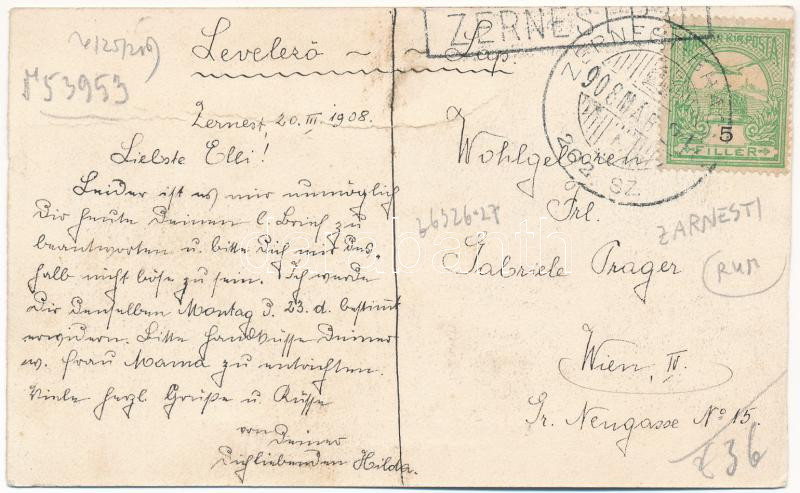 ZERNEST
Levelező - Lap.
53953
ZERNEST
908 MÁR
262 SZ.
MAGY. KIR. POSTA
5
FILLER
Zernest, 20.III.1908.
Liebste Elli!
Leider ist es mir unmöglich
Dir heute Deinen l. Brief zu
beantworten u. bitte Dich mir des-
halb nicht böse zu sein. Ich werde
Dir denselben Montag d. 23. d. bestimmt
erwidern. Bitte Handküsse Deiner
w. Frau Mama zu entrichten.
Viele herzl. Grüße u. Küsse
von Deiner
Dichliebenden Hilda.
Wohlgeboren
Frl.
Gabriele Prager
Wien, IV.
Gr. Neugasse No 15.
36326-27
ZARNESTI
RUM
36